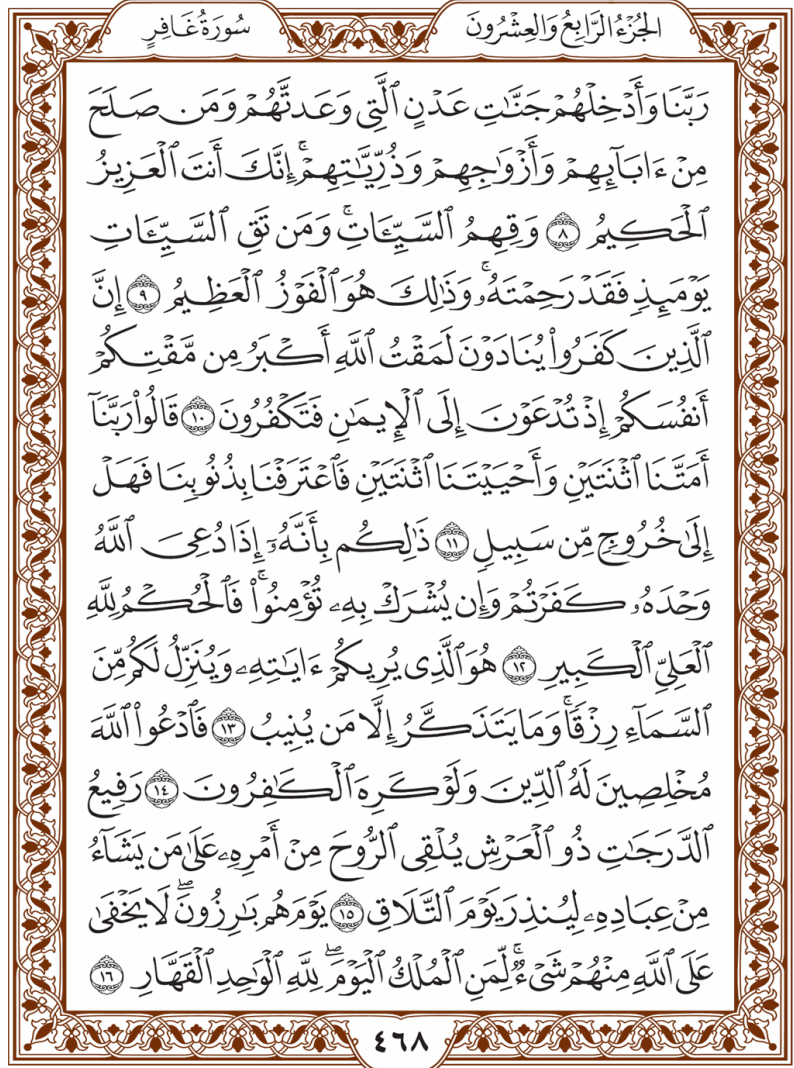 الجُزْءُ الرَّابِعُ وَالعِشْرُونَ
سُورَةُ غَافِرٍ
رَبَّنَا وَأَدْخِلْهُمْ جَنَّـٰتِ عَدْنٍ ٱلَّتِى وَعَدتَّهُمْ وَمَن صَلَحَ
مِنْ ءَابَآئِهِمْ وَأَزْوَٰجِهِمْ وَذُرِّيَّـٰتِهِمْ ۚ إِنَّكَ أَنتَ ٱلْعَزِيزُ
ٱلْحَكِيمُ ٨ وَقِهِمُ ٱلسَّيِّـَٔاتِ ۚ وَمَن تَقِ ٱلسَّيِّـَٔاتِ
يَوْمَئِذٍ فَقَدْ رَحِمْتَهُۥ ۚ وَذَٰلِكَ هُوَ ٱلْفَوْزُ ٱلْعَظِيمُ ٩ إِنَّ
ٱلَّذِينَ كَفَرُوا۟ يُنَادَوْنَ لَمَقْتُ ٱللَّهِ أَكْبَرُ مِن مَّقْتِكُمْ
أَنفُسَكُمْ إِذْ تُدْعَوْنَ إِلَى ٱلْإِيمَـٰنِ فَتَكْفُرُونَ ١٠ قَالُوا۟ رَبَّنَآ
أَمَتَّنَا ٱثْنَتَيْنِ وَأَحْيَيْتَنَا ٱثْنَتَيْنِ فَٱعْتَرَفْنَا بِذُنُوبِنَا فَهَلْ
إِلَىٰ خُرُوجٍ مِّن سَبِيلٍ ١١ ذَٰلِكُم بِأَنَّهُۥٓ إِذَا دُعِىَ ٱللَّهُ
وَحْدَهُۥ كَفَرْتُمْ وَإِن يُشْرَكْ بِهِۦ تُؤْمِنُوا۟ ۚ فَٱلْحُكْمُ لِلَّهِ
ٱلْعَلِىِّ ٱلْكَبِيرِ ١٢ هُوَ ٱلَّذِى يُرِيكُمْ ءَايَـٰتِهِۦ وَيُنَزِّلُ لَكُم مِّنَ
ٱلسَّمَآءِ رِزْقًا ۚ وَمَا يَتَذَكَّرُ إِلَّا مَن يُنِيبُ ١٣ فَٱدْعُوا۟ ٱللَّهَ
مُخْلِصِينَ لَهُ ٱلدِّينَ وَلَوْ كَرِهَ ٱلْكَـٰفِرُونَ ١٤ رَفِيعُ
ٱلدَّرَجَـٰتِ ذُو ٱلْعَرْشِ يُلْقِى ٱلرُّوحَ مِنْ أَمْرِهِۦ عَلَىٰ مَن يَشَآءُ
مِنْ عِبَادِهِۦ لِيُنذِرَ يَوْمَ ٱلتَّلَاقِ ١٥ يَوْمَ هُم بَـٰرِزُونَ ۖ لَا يَخْفَىٰ
عَلَى ٱللَّهِ مِنْهُمْ شَىْءٌ ۚ لِّمَنِ ٱلْمُلْكُ ٱلْيَوْمَ ۖ لِلَّهِ ٱلْوَٰحِدِ ٱلْقَهَّارِ ١٦
٤٦٨